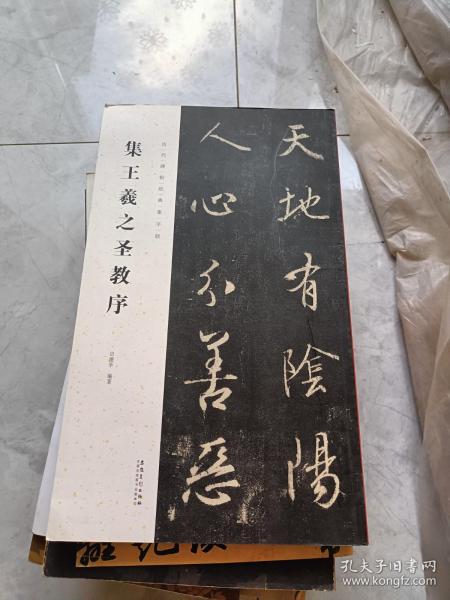 集王羲之圣教序
历代碑帖经典集字联
编著
天地有陰陽
人心分善惡
孔夫子旧书网
www.kongfz.com